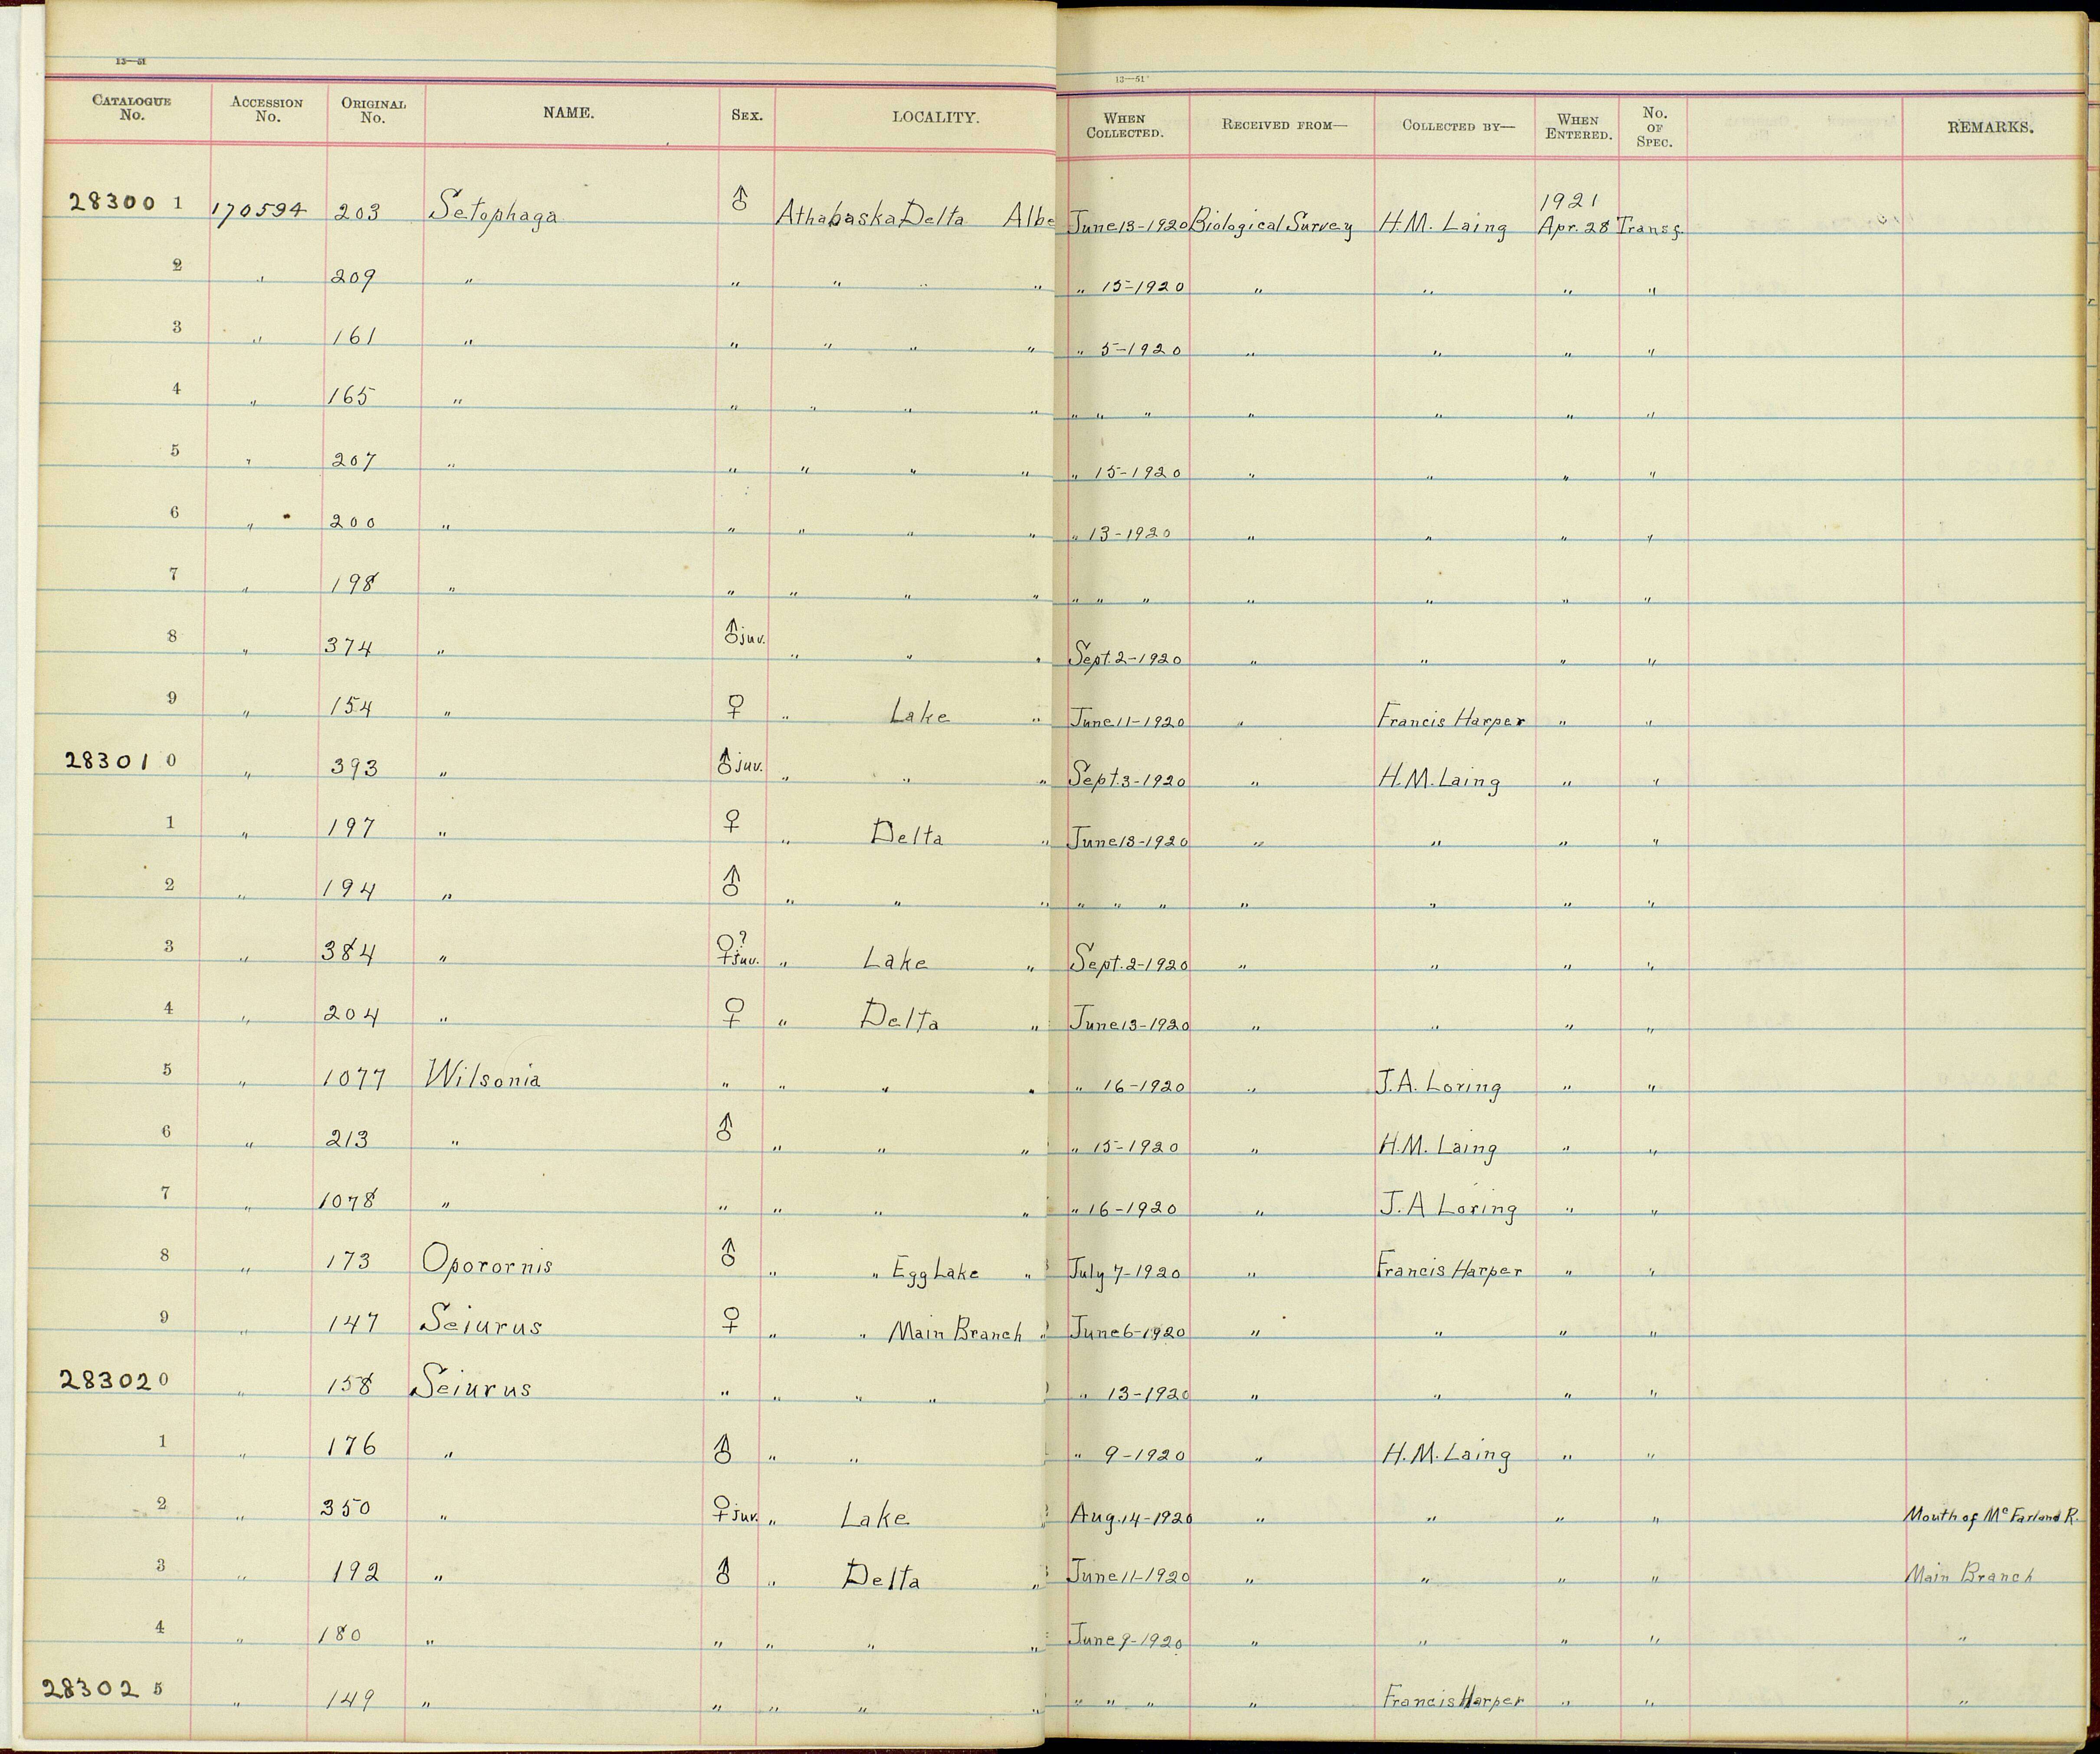 13—51
13—51
CATALOGUE No. ACCESSION No. ORIGINAL No. NAME. SEX. LOCALITY. WHEN COLLECTED. RECEIVED FROM— COLLECTED BY— WHEN ENTERED. No. OF SPEC. REMARKS.
28300 1 170594 203 Setophaga ♂ Athabaska Delta Albe June 13-1920 Biological Survey H.M. Laing 1921 Apr. 28 Transf.
2 " 209 " " " " " " 15-1920 " " " "
3 " 161 " " " " " " 5-1920 " " " "
4 " 165 " " " " " " " " " " " "
5 " 207 " " " " " " 15-1920 " " " "
6 " 200 " " " " " " 13-1920 " " " "
7 " 198 " " " " " " " " " " " "
8 " 374 " ♂ juv. " " " Sept. 2-1920 " " " "
9 " 154 " ♀ " Lake " June 11-1920 " Francis Harper " "
28301 0 " 393 " ♂ juv. " " " Sept. 3-1920 " H.M. Laing " "
1 " 197 " ♀ " Delta " June 13-1920 " " " "
2 " 194 " ♂ " " " " " " " " " "
3 " 384 " ♀? juv. " Lake " Sept. 2-1920 " " " "
4 " 204 " ♀ " Delta " June 13-1920 " " " "
5 " 1077 Wilsonia " " " " " 16-1920 " J.A. Loring " "
6 " 213 " ♂ " " " " 15-1920 " H.M. Laing " "
7 " 1078 " " " " " " 16-1920 " J.A Loring " "
8 " 173 Oporornis ♂ " " Egg Lake " July 7-1920 " Francis Harper " "
9 " 147 Seiurus ♀ " " Main Branch " June 6-1920 " " " "
28302 0 " 158 Seiurus " " " " " 13-1920 " " " "
1 " 176 " ♂ " " " 9-1920 " H.M. Laing " "
2 " 350 " ♀ juv. " Lake " Aug. 14-1920 " " " " Mouth of McFarland R.
3 " 192 " ♂ " Delta " June 11-1920 " " " " Main Branch
4 " 180 " " " " " June 9-1920 " " " " "
28302 5 " 149 " " " " " " " " " Francis Harper " " "